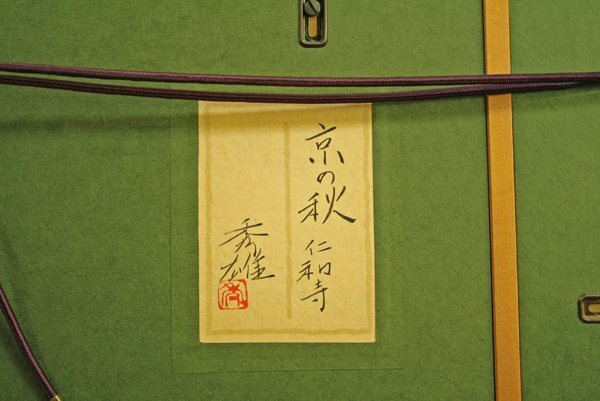 京の秋 仁和寺
秀雄